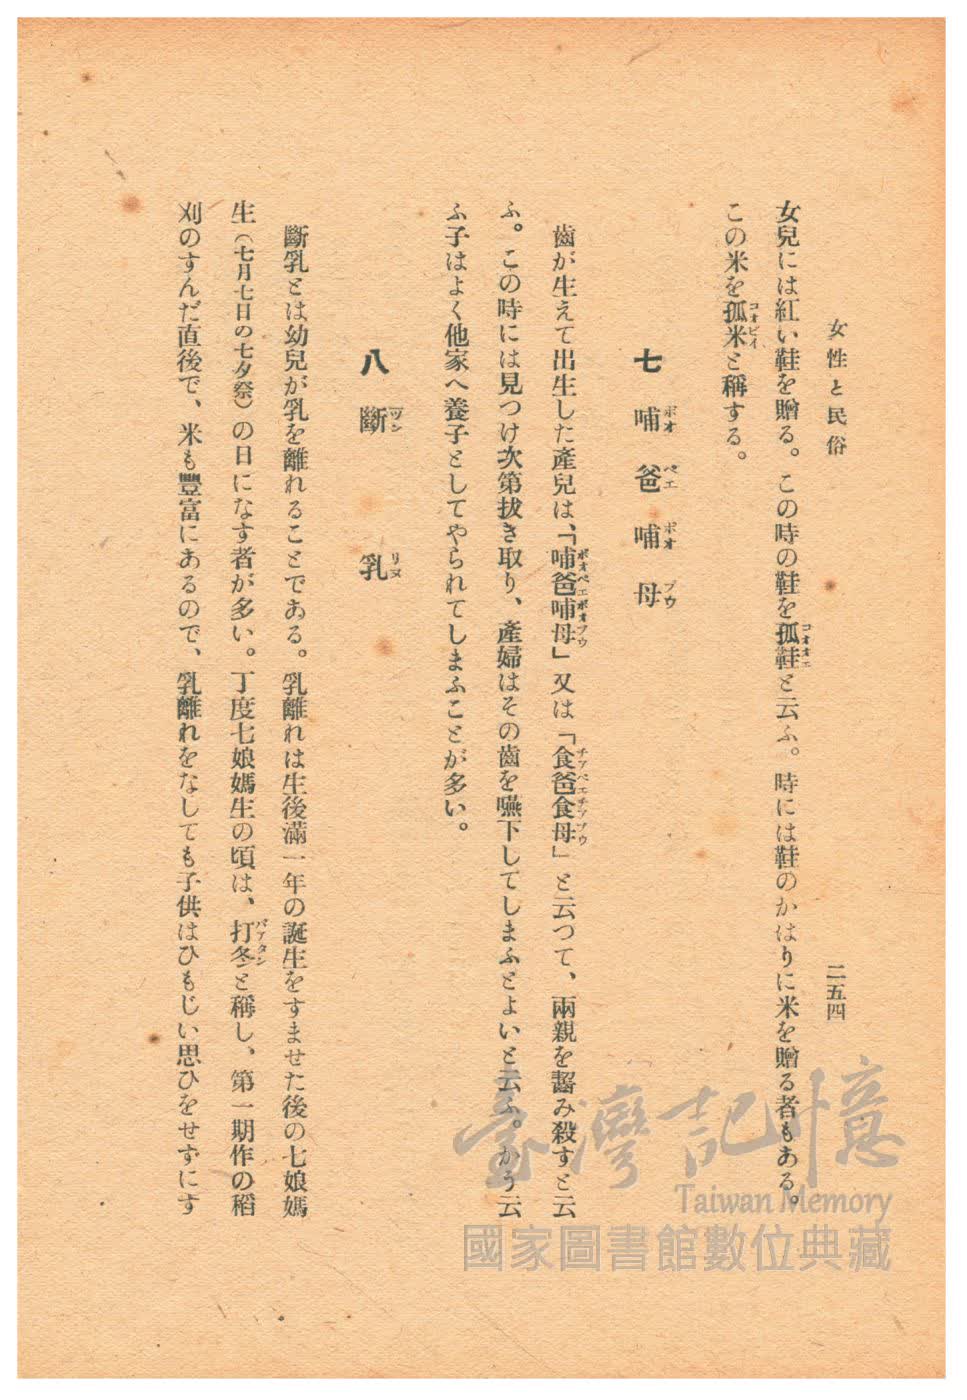 女性と民俗
二五四
女兒には紅い鞋を贈る。この時の鞋を孤鞋と云ふ。時には鞋のかはりに米を贈る者もある。
コオオエ
この米を孤米と稱する。
コオビイ
七 哺爸哺母
ポオ ペエ ポオ ブウ
齒が生えて出生した產兒は、「哺爸哺母」又は「食爸食母」と云つて、兩親を齧み殺すと云
ポオペエポオブウ チアペエチアブウ
ふ。この時には見つけ次第拔き取り、產婦はその齒を嚥下してしまふとよいと云ふ。かう云
ふ子はよく他家へ養子としてやられてしまふことが多い。
八 斷乳
ヅン リヌ
斷乳とは幼兒が乳を離れることである。乳離れは生後滿一年の誕生をすませた後の七娘媽
生(七月七日の七夕祭)の日になす者が多い。丁度七娘媽生の頃は、打冬と稱し、第一期作の稻
パアタン
刈のすんだ直後で、米も豐富にあるので、乳離れをなしても子供はひもじい思ひをせずにす
臺灣記憶
Taiwan Memory
國家圖書館數位典藏